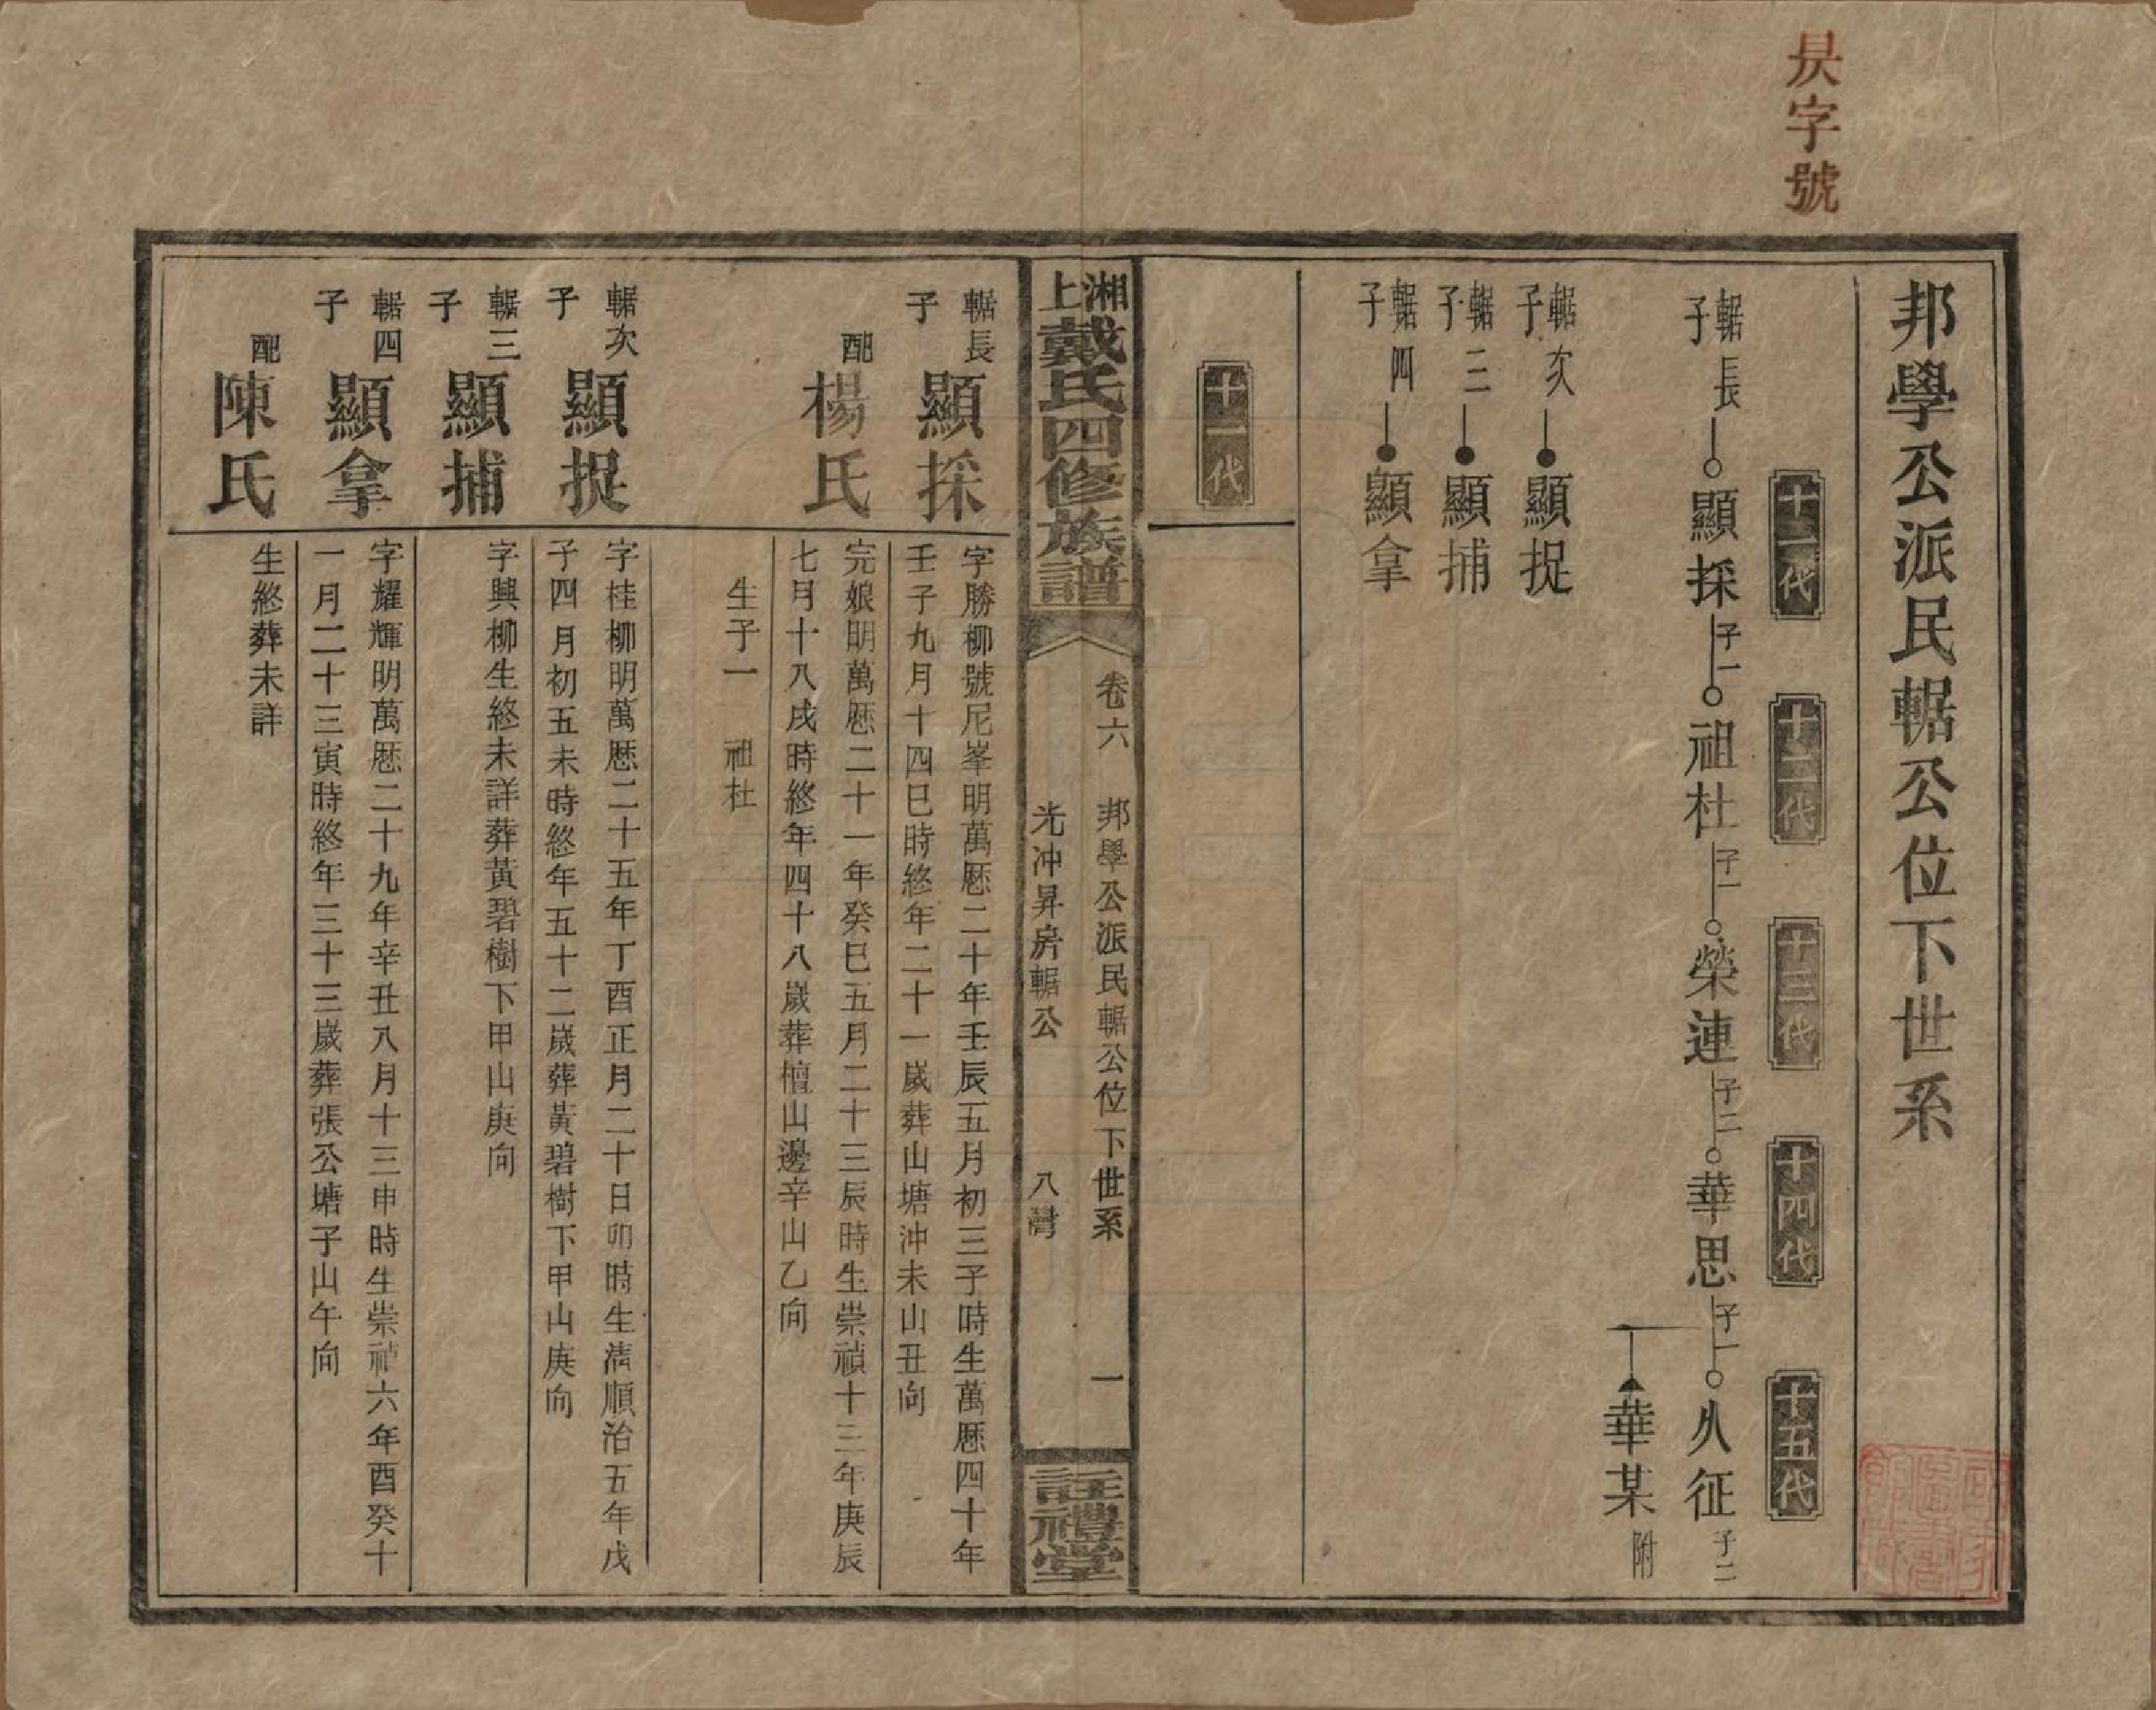 昃字號
邦學公派民輼公位下世系
十一代
十二代
十三代
十四代
十五代
輼長子 顯採 子一 祖杜 子一 榮連 子二 華思 子一 久征 子二
華某 附
輼次子 顯捉
輼三子 顯捕
輼四子 顯拿
十一代
湘上戴氏四修族譜
卷六 邦學公派民輼公位下世系 一
光冲昇房輼公 八灣
註禮堂
輼長子 顯採
字勝柳號尼峯明萬厯二十年壬辰五月初三子時生萬厯四十年
壬子九月十四巳時終年二十一歲葬山塘沖未山丑向
配 楊氏
完娘明萬厯二十一年癸巳五月二十三辰時生崇禎十三年庚辰
七月十八戌時終年四十八歲葬檀山邊辛山乙向
生子一 祖杜
輼次子 顯捉
字桂柳明萬厯二十五年丁酉正月二十日卯時生淸順治五年戊
子四月初五未時終年五十二歲葬黃碧樹下甲山庚向
輼三子 顯捕
字興柳生終未詳葬黃碧樹下甲山庚向
輼四子 顯拿
字耀輝明萬厯二十九年辛丑八月十三申時生崇禎六年酉癸十
一月二十三寅時終年三十三歲葬張公塘子山午向
配 陳氏
生終葬未詳